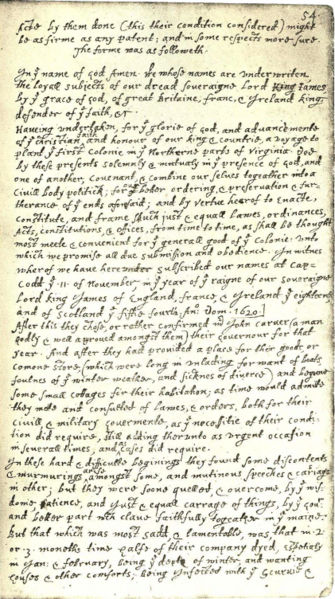 54.
facte by them done (this their condition considered) might
be as firme as any patent; and in some respects more sure.
The forme was as followeth.
In yͤ name of god Amen. We whose names are underwriten,
the loyall subjects of our dread soveraigne Lord King James
by yͤ grace of god, of great Britaine, franc, & Ireland king,
defender of yͤ faith, &c.
Haveing undertaken, for yͤ glorie of god, and advancemente
of yͤ christian faith and honour of our king & countrie, a voyage to
plant yͤ first colonie in yͤ Northerne parts of Virginia. Doe
by these presents solemnly & mutualy in yͤ presence of god, and
one of another, covenant, & combine our selves togeather into a
Civill body politick; for our better ordering, & preservation & fur-
therance of yͤ ends aforesaid; and by vertue hearof to enacte,
constitute, and frame shuch just & equall lawes, ordinances,
Acts, constitutions, & offices, from time to time, as shall be thought
most meete & convenient for yͤ generall good of yͤ colonie: unto
which we promise all due submission and obedience. In witnes
wherof we have hereunder subscribed our names at Cap-
Codd yͤ .11. of November, in yͤ year of yͤ raigne of our soveraigne
Lord king James of England, france, & Ireland yͤ eighteenth
and of Scotland yͤ fiftie fourth. Anᵒ: Dom. 1620.
After this they chose, or rather confirmed mr John Carver (a man
godly & well approved amongst them) their governour for that
year. And after they had provided a place for their goods, or
comone store, (which were long in unlading for want of boats,
foulnes of yͤ winter weather, and sicknes of diverce) and begune
some small cottages for their habitation; as time would admitte
they mette and consulted of lawes, & orders, both for their
civill & military govermente, as yͤ necessitie of their condi-
tion did require, still adding therunto as urgent occasion
in severall times, and as cases did require.
In these hard & difficulte beginings they found some discontents
& murmurings amongst some, and mutinous speeches & cariags
in other; but they were soone quelled, & overcome, by yͤ wis-
dome, patience, and just & equall carrage of things, by yͤ govr
and better part wch clave faithfully togeather in yͤ maine.
But that which was most sadd, & lamentable, was, that in .2.
or .3. moneths time halfe of their company dyed, espetialy
in Jan: & february, being yͤ depth of winter, and wanting
houses & other comforts; being Infected with yͤ scurvie &